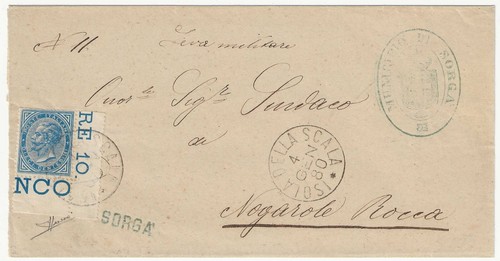 N 11.
Leva militare
MUNICIPIO DI SORGA
Onor.le Sig.r Sindaco
di
Nogarole Rocca
ISOLA DELLA SCALA
4
GEN
80
RE 10
NCO
SORGA'